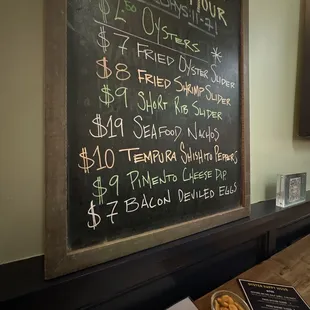 $2.50 Oysters
$7 Fried Oyster Slider
$8 Fried Shrimp Slider
$9 Short Rib Slider
$19 Seafood Nachos
$10 Tempura Shishito Peppers
$9 Pimento Cheese Dip
$7 Bacon Deviled Eggs